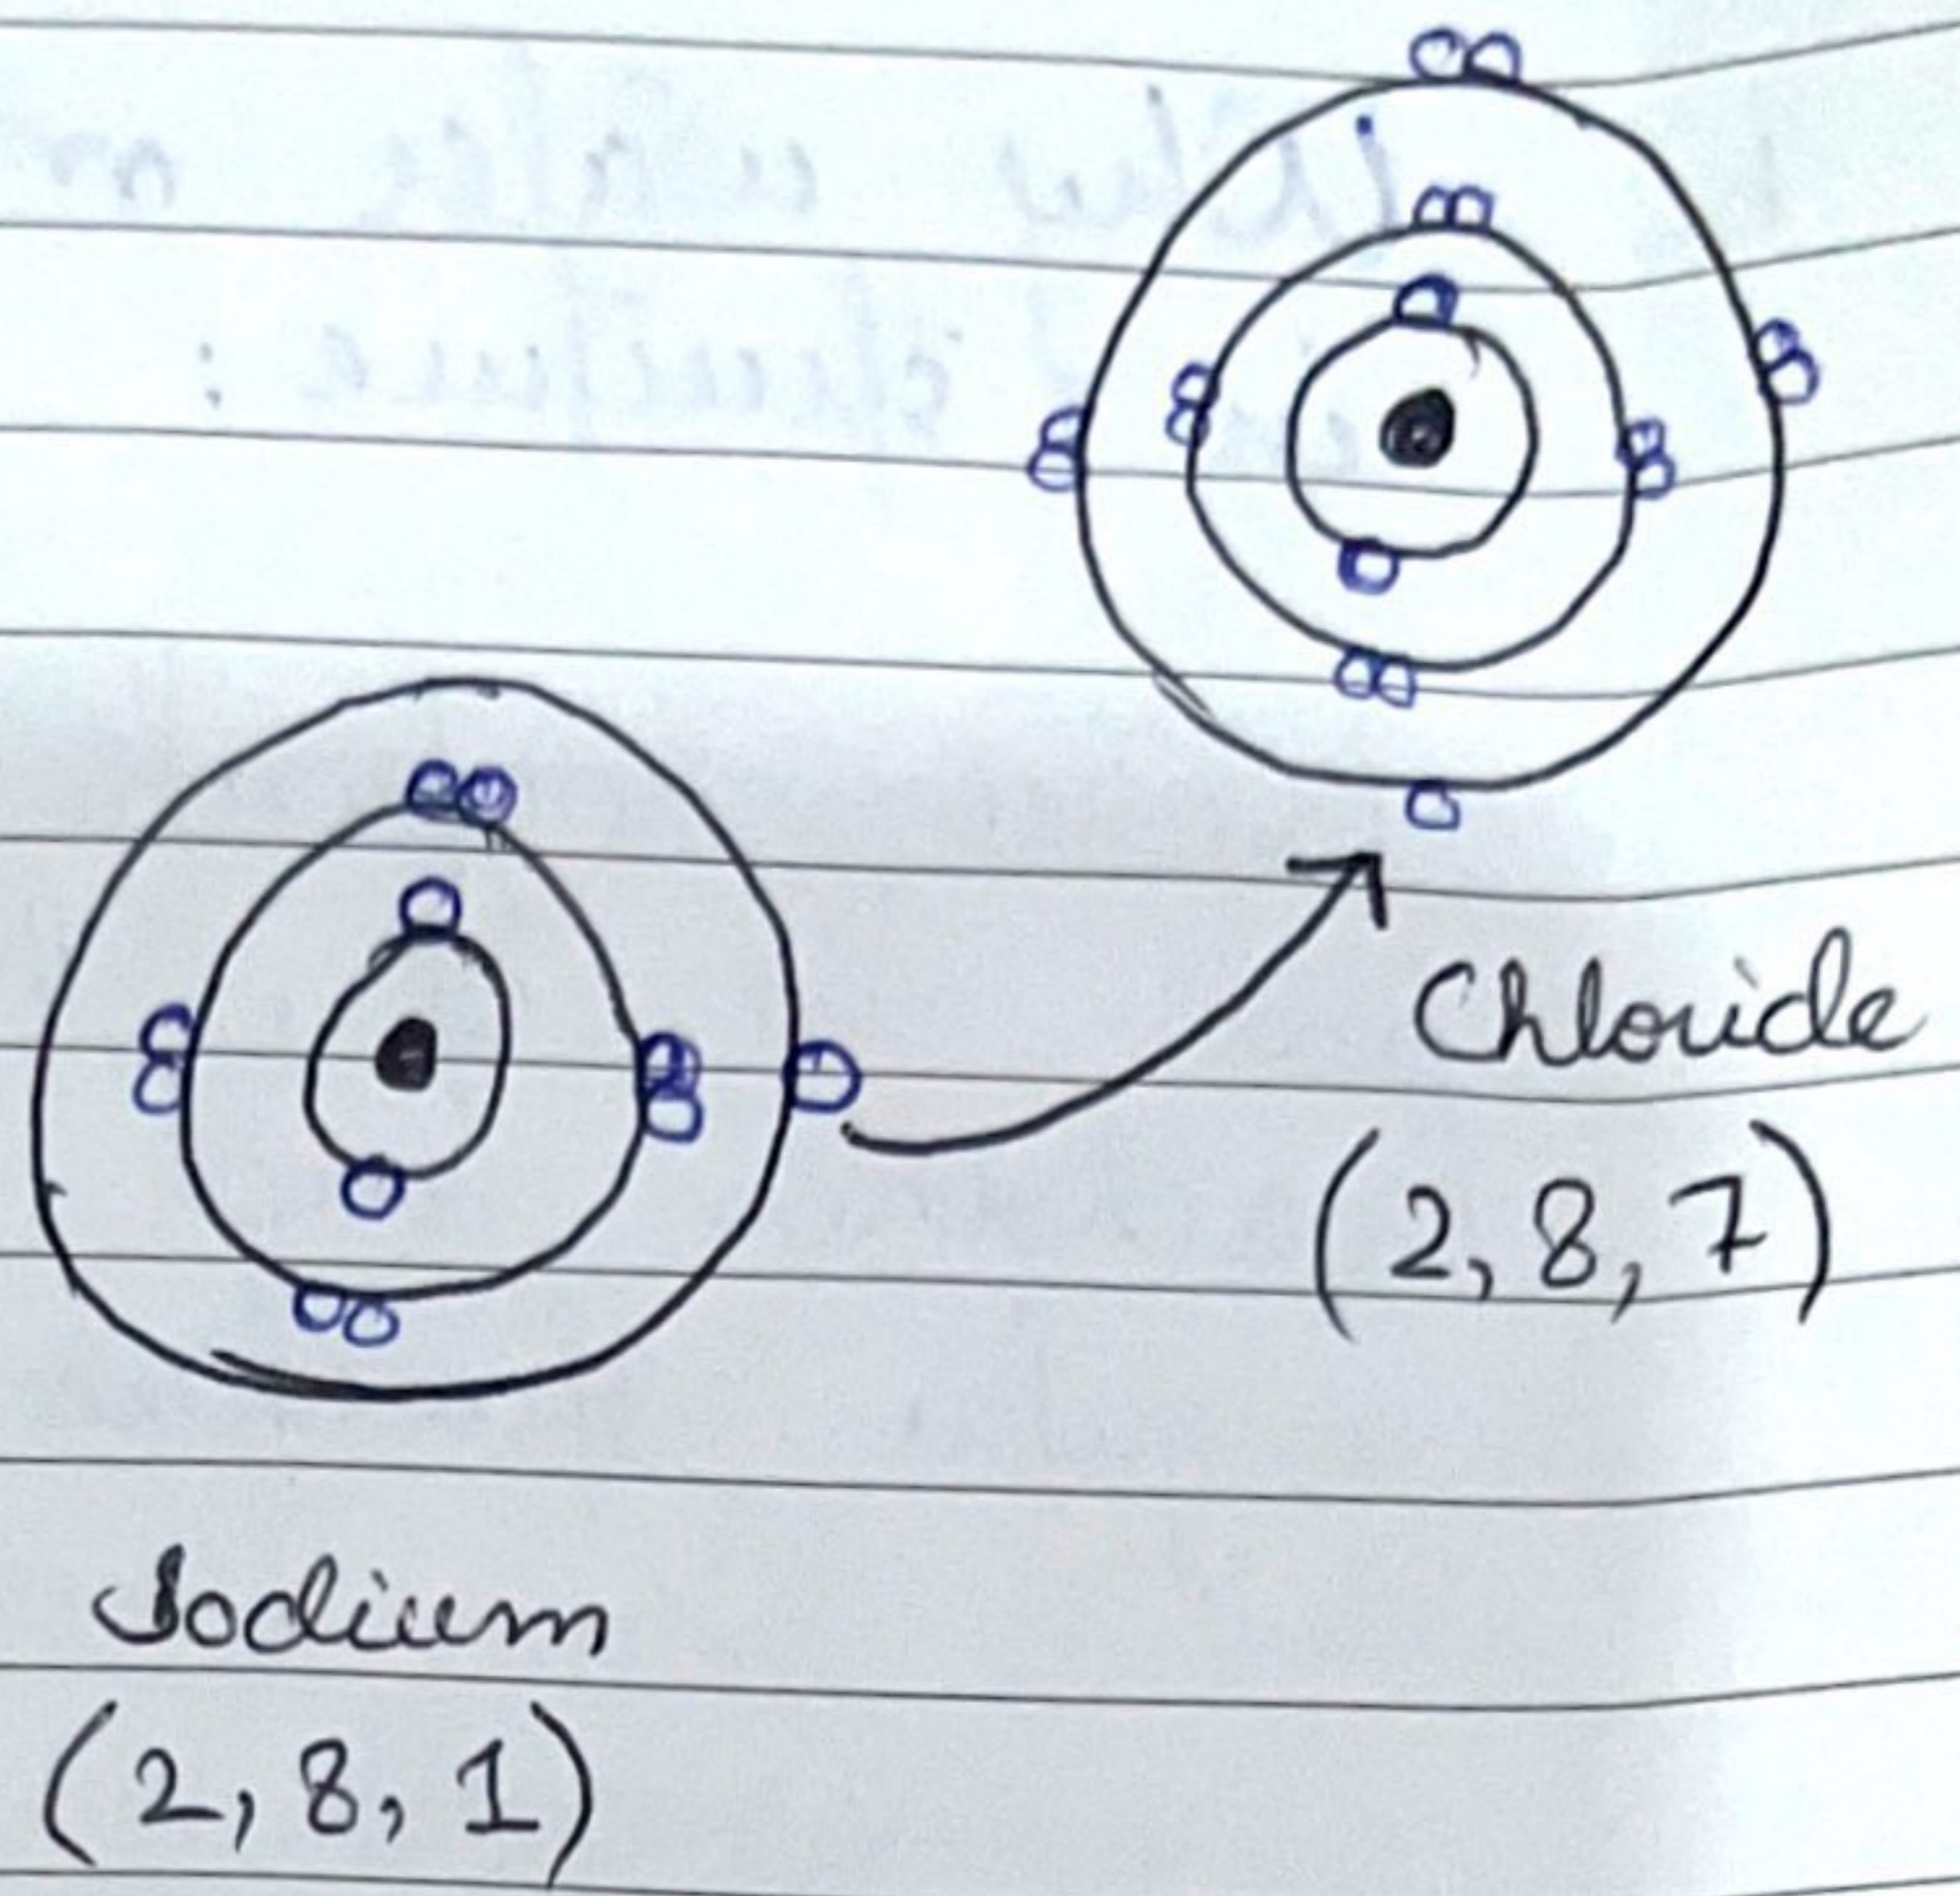 Chloride
(2, 8, 7)
Sodium
(2, 8, 1)